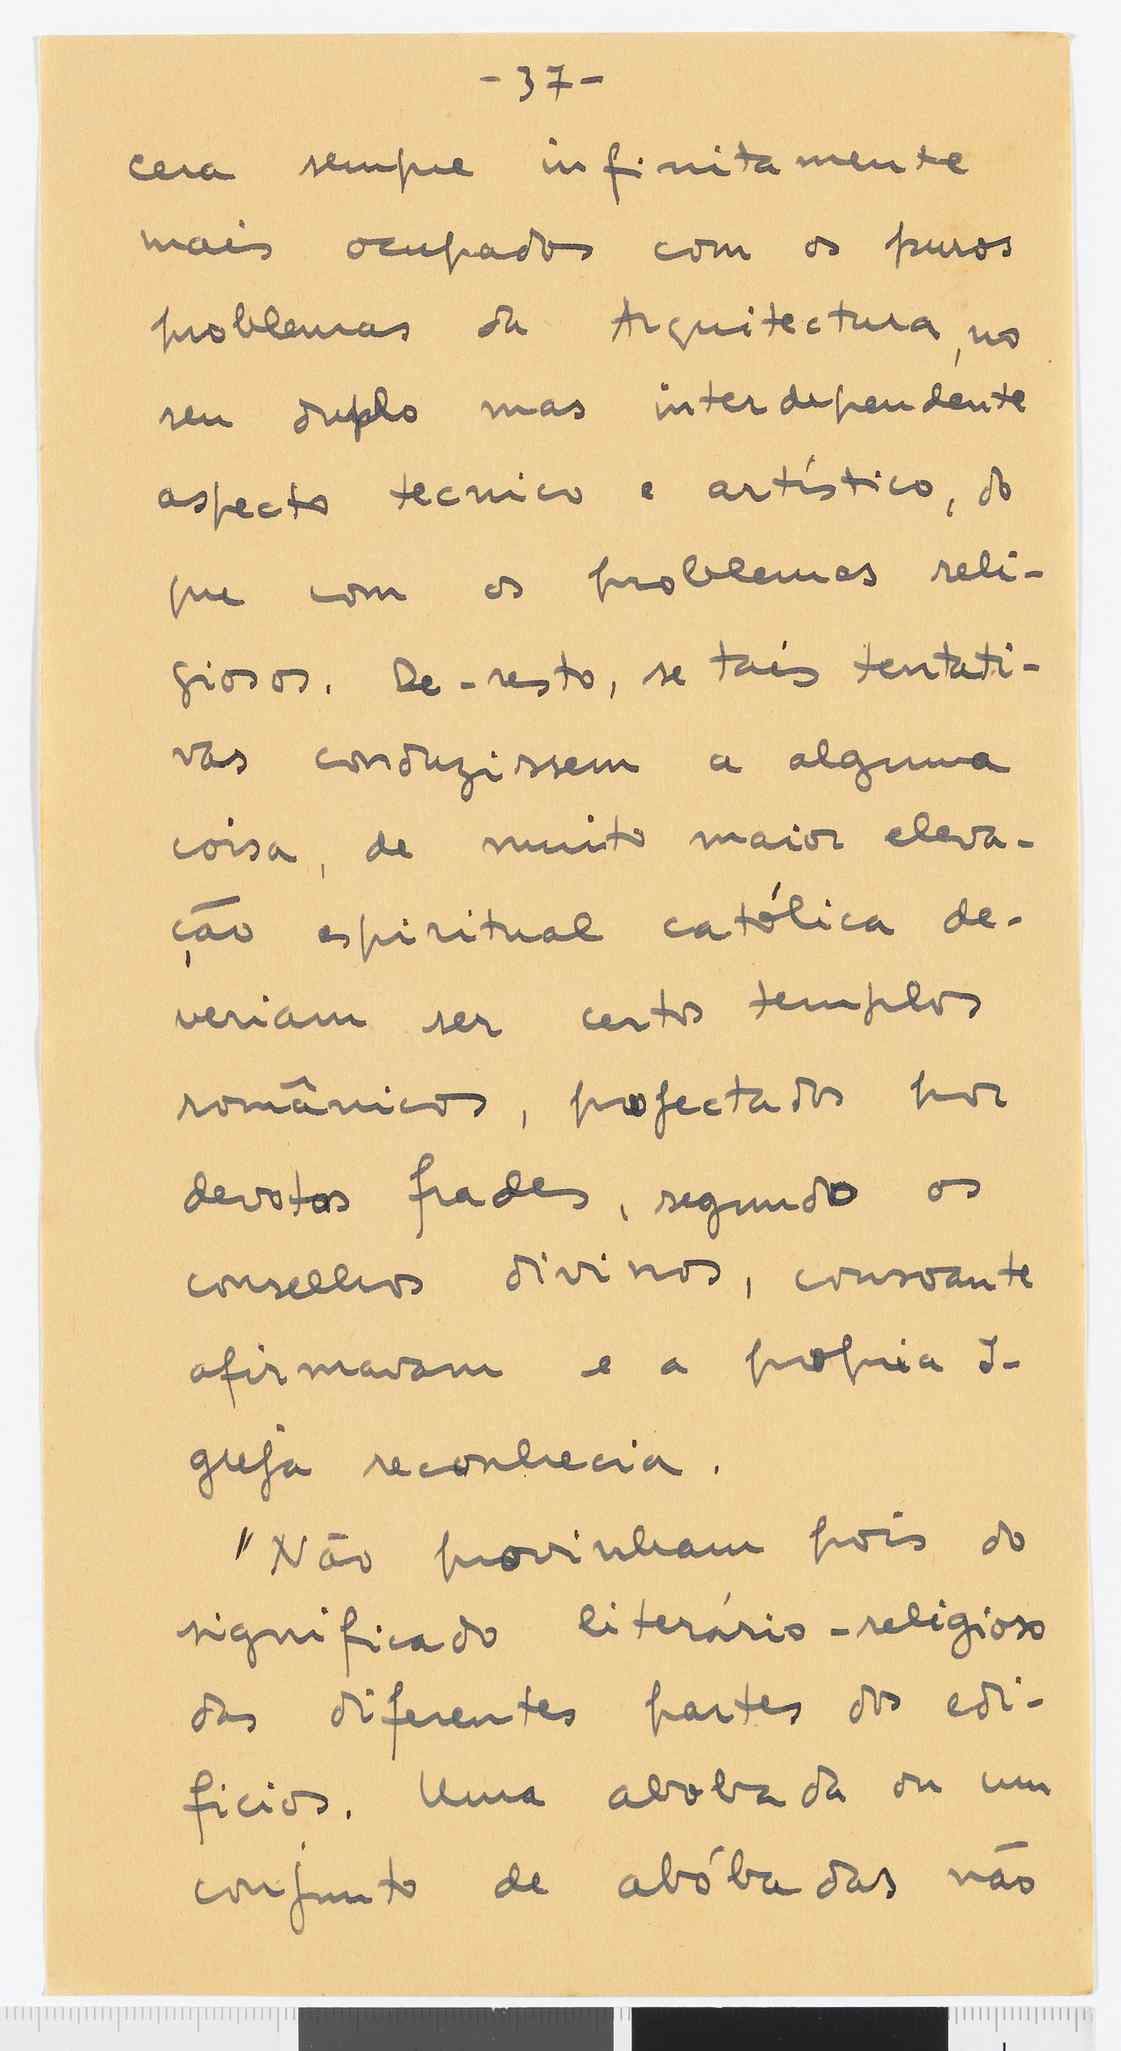 -37-
cera sempre infinitamente
mais ocupados com os puros
problemas da Arquitectura, no
seu duplo mas interdependente
aspecto tecnico e artístico, do
que com os problemas reli-
giosos. De-resto, se tais tentati-
vas conduzissem a alguma
coisa, de muito maior eleva-
ção espiritual católica de-
veriam ser certos templos
românicos, projectados por
devotos frades, segundo os
conselhos divinos, consoante
afirmavam e a propria I-
greja reconhecia.
"Não provinham pois do
significado literário-religioso
das diferentes partes dos edi-
ficios. Uma abobada ou um
conjunto de abóbadas não